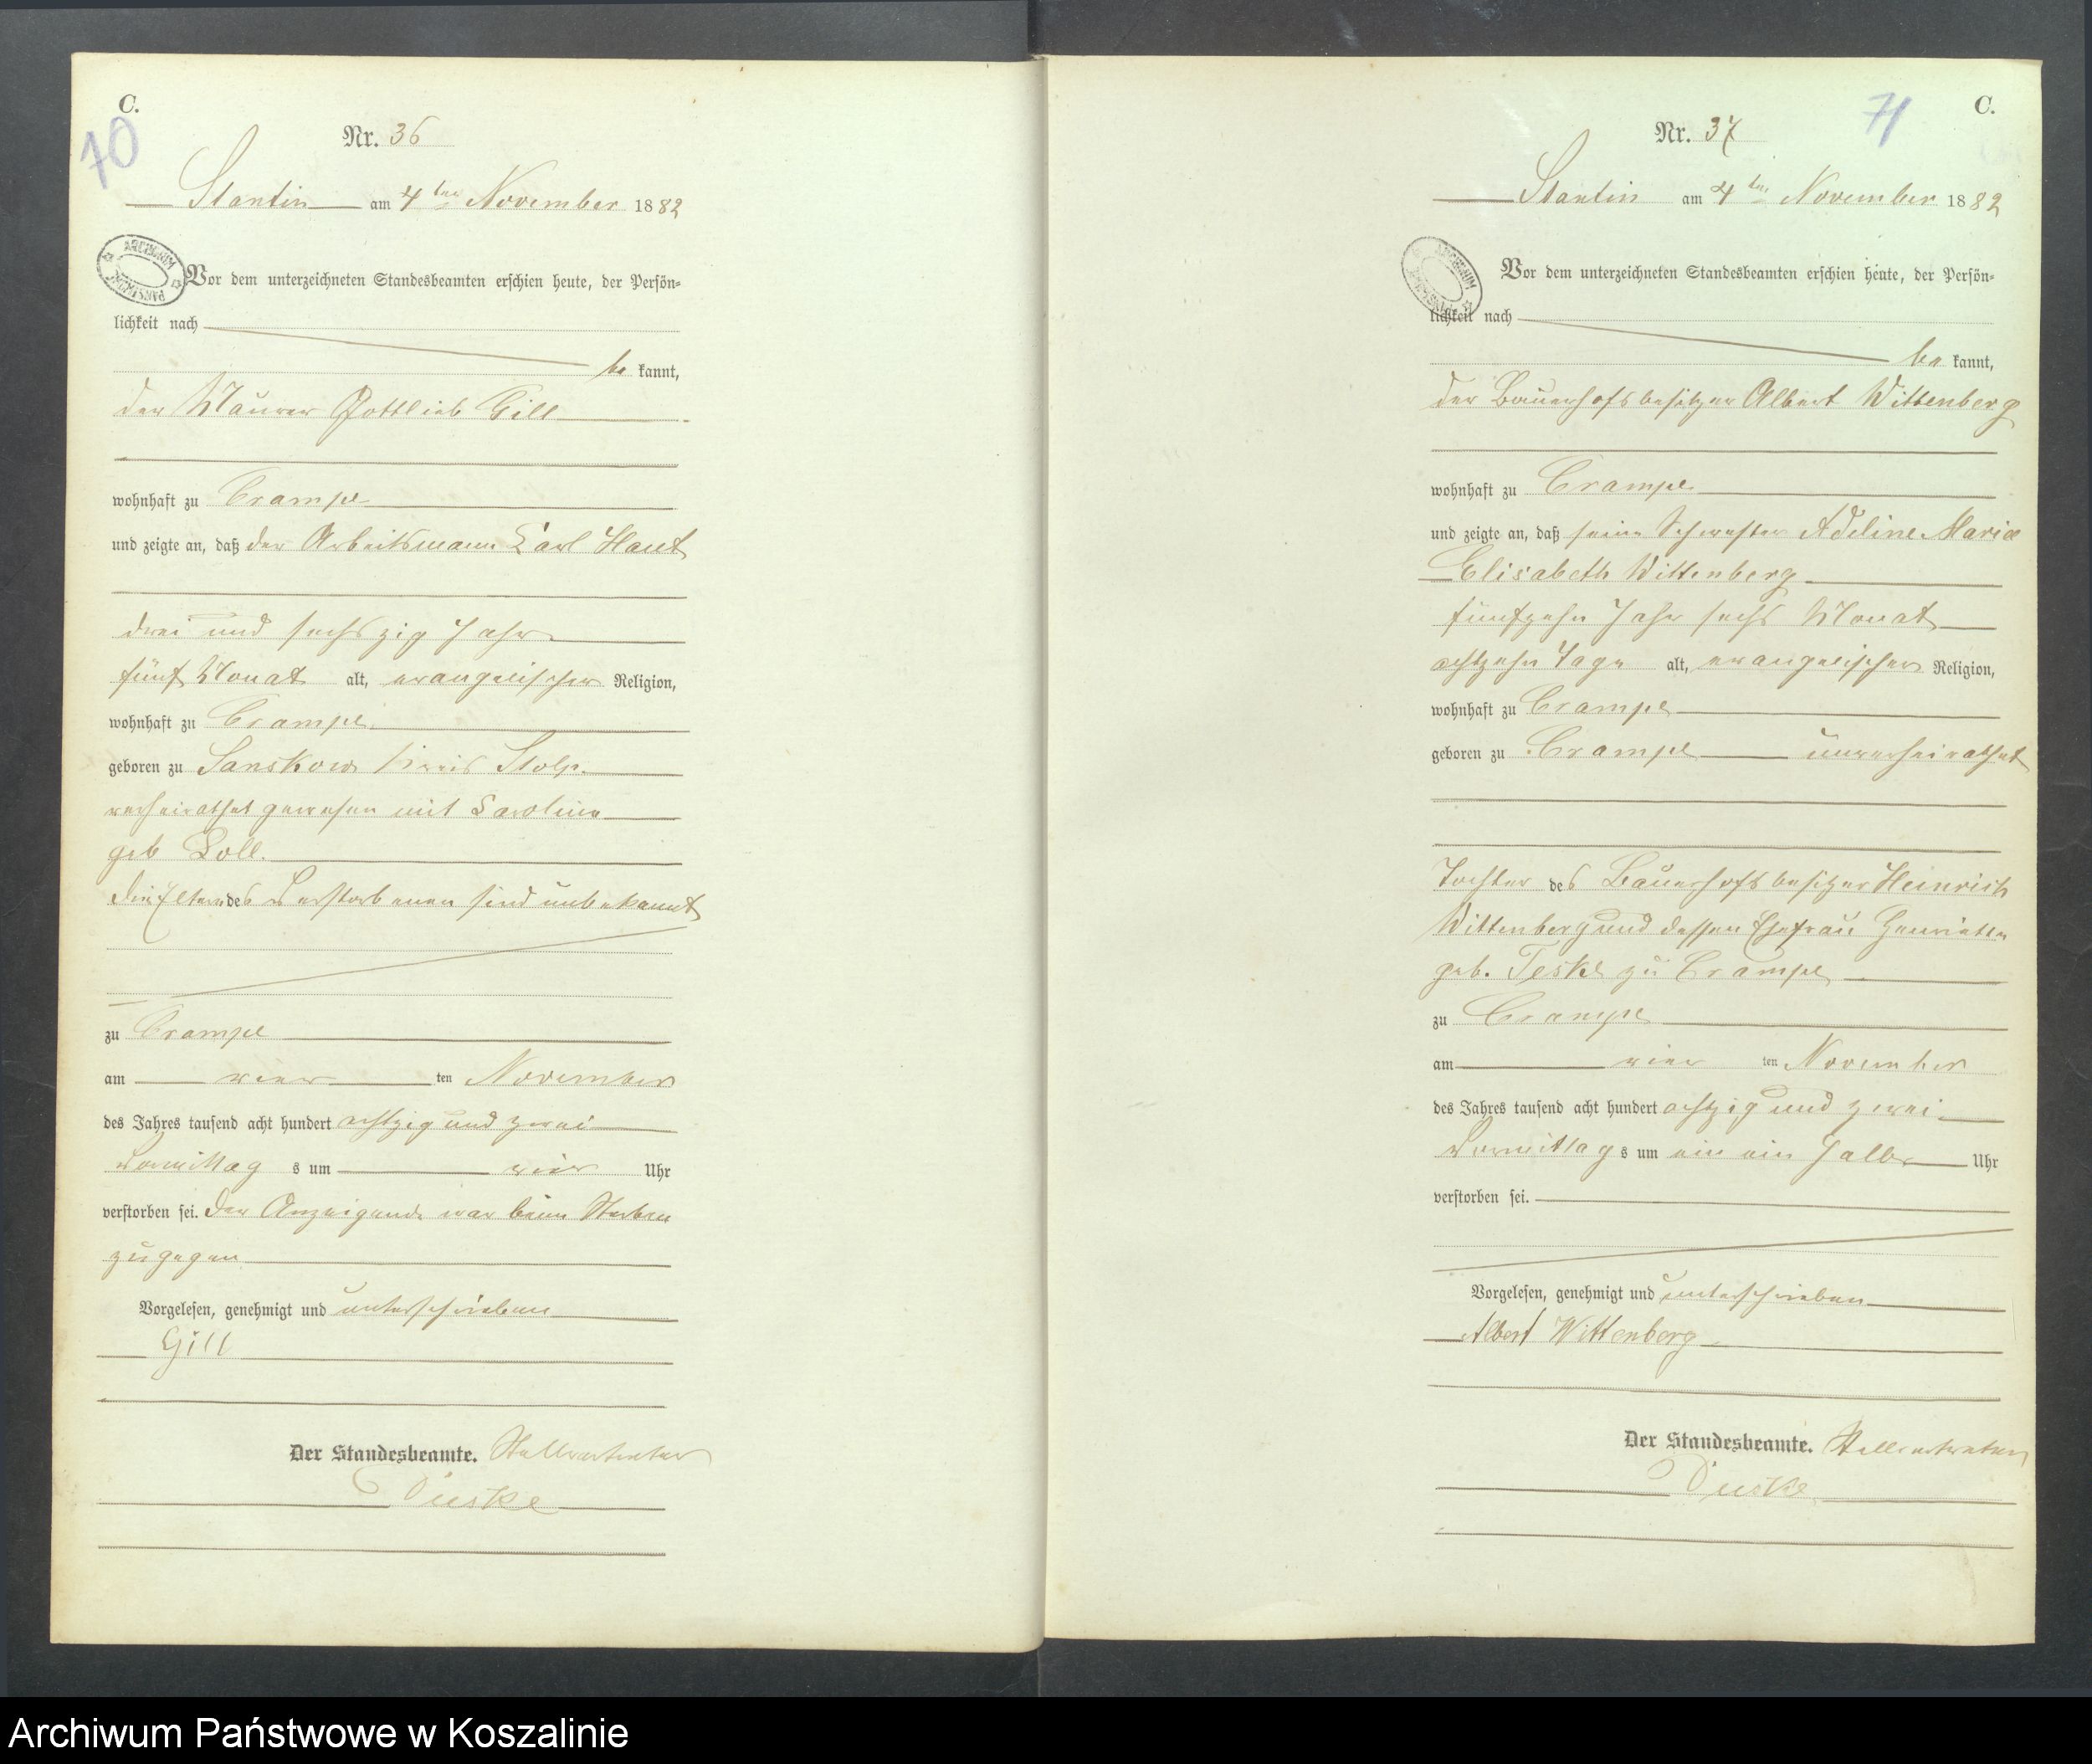 C.
70
Nr. 36
Stantin am 4ten November 1882
ARCHIWUM PAŃSTWOWE
Vor dem unterzeichneten Standesbeamten erschien heute, der Persön-
lichkeit nach
be kannt,
der Maurer Gottlieb Gill
wohnhaft zu Crampe
und zeigte an, daß der Arbeitsmann Carl Haut
drei und sechszig Jahr
fünf Monat alt, evangelischer Religion,
wohnhaft zu Crampe
geboren zu Sanskow Kreis Stolp
verheirathet gewesen mit Caroline
geb
die Eltern des Verstorbenen sind unbekannt
zu Crampe
am vier ten November
des Jahres tausend acht hundert achtzig und zwei
Vormittag s um vier Uhr
verstorben sei. Der Anzeigende war beim Sterben
zugegen
Vorgelesen, genehmigt und unterschrieben
Gill
Der Standesbeamte. Stellvertreter
C.
71
Nr. 37
Stantin am 4ten November 1882
ARCHIWUM PAŃSTWOWE
Vor dem unterzeichneten Standesbeamten erschien heute, der Persön-
lichkeit nach
be kannt,
der Bauerhofsbesitzer Albert Wittenberg
wohnhaft zu Crampe
und zeigte an, daß seine Schwester Adeline Marie
Elisabeth Wittenberg
fünfzehn Jahr sechs Monat
achtzehn Tage alt, evangelischer Religion,
wohnhaft zu Crampe
geboren zu Crampe unverheirathet
Tochter des Bauerhofsbesitzer Heinrich
Wittenberg und dessen Ehefrau Henriette
geb. Teske zu Crampe
zu Crampe
am vier ten November
des Jahres tausend acht hundert achtzig und zwei
Vormittag s um ein ein halb Uhr
verstorben sei.
Vorgelesen, genehmigt und unterschrieben
Albert Wittenberg
Der Standesbeamte. Stellvertreter
Archiwum Państwowe w Koszalinie